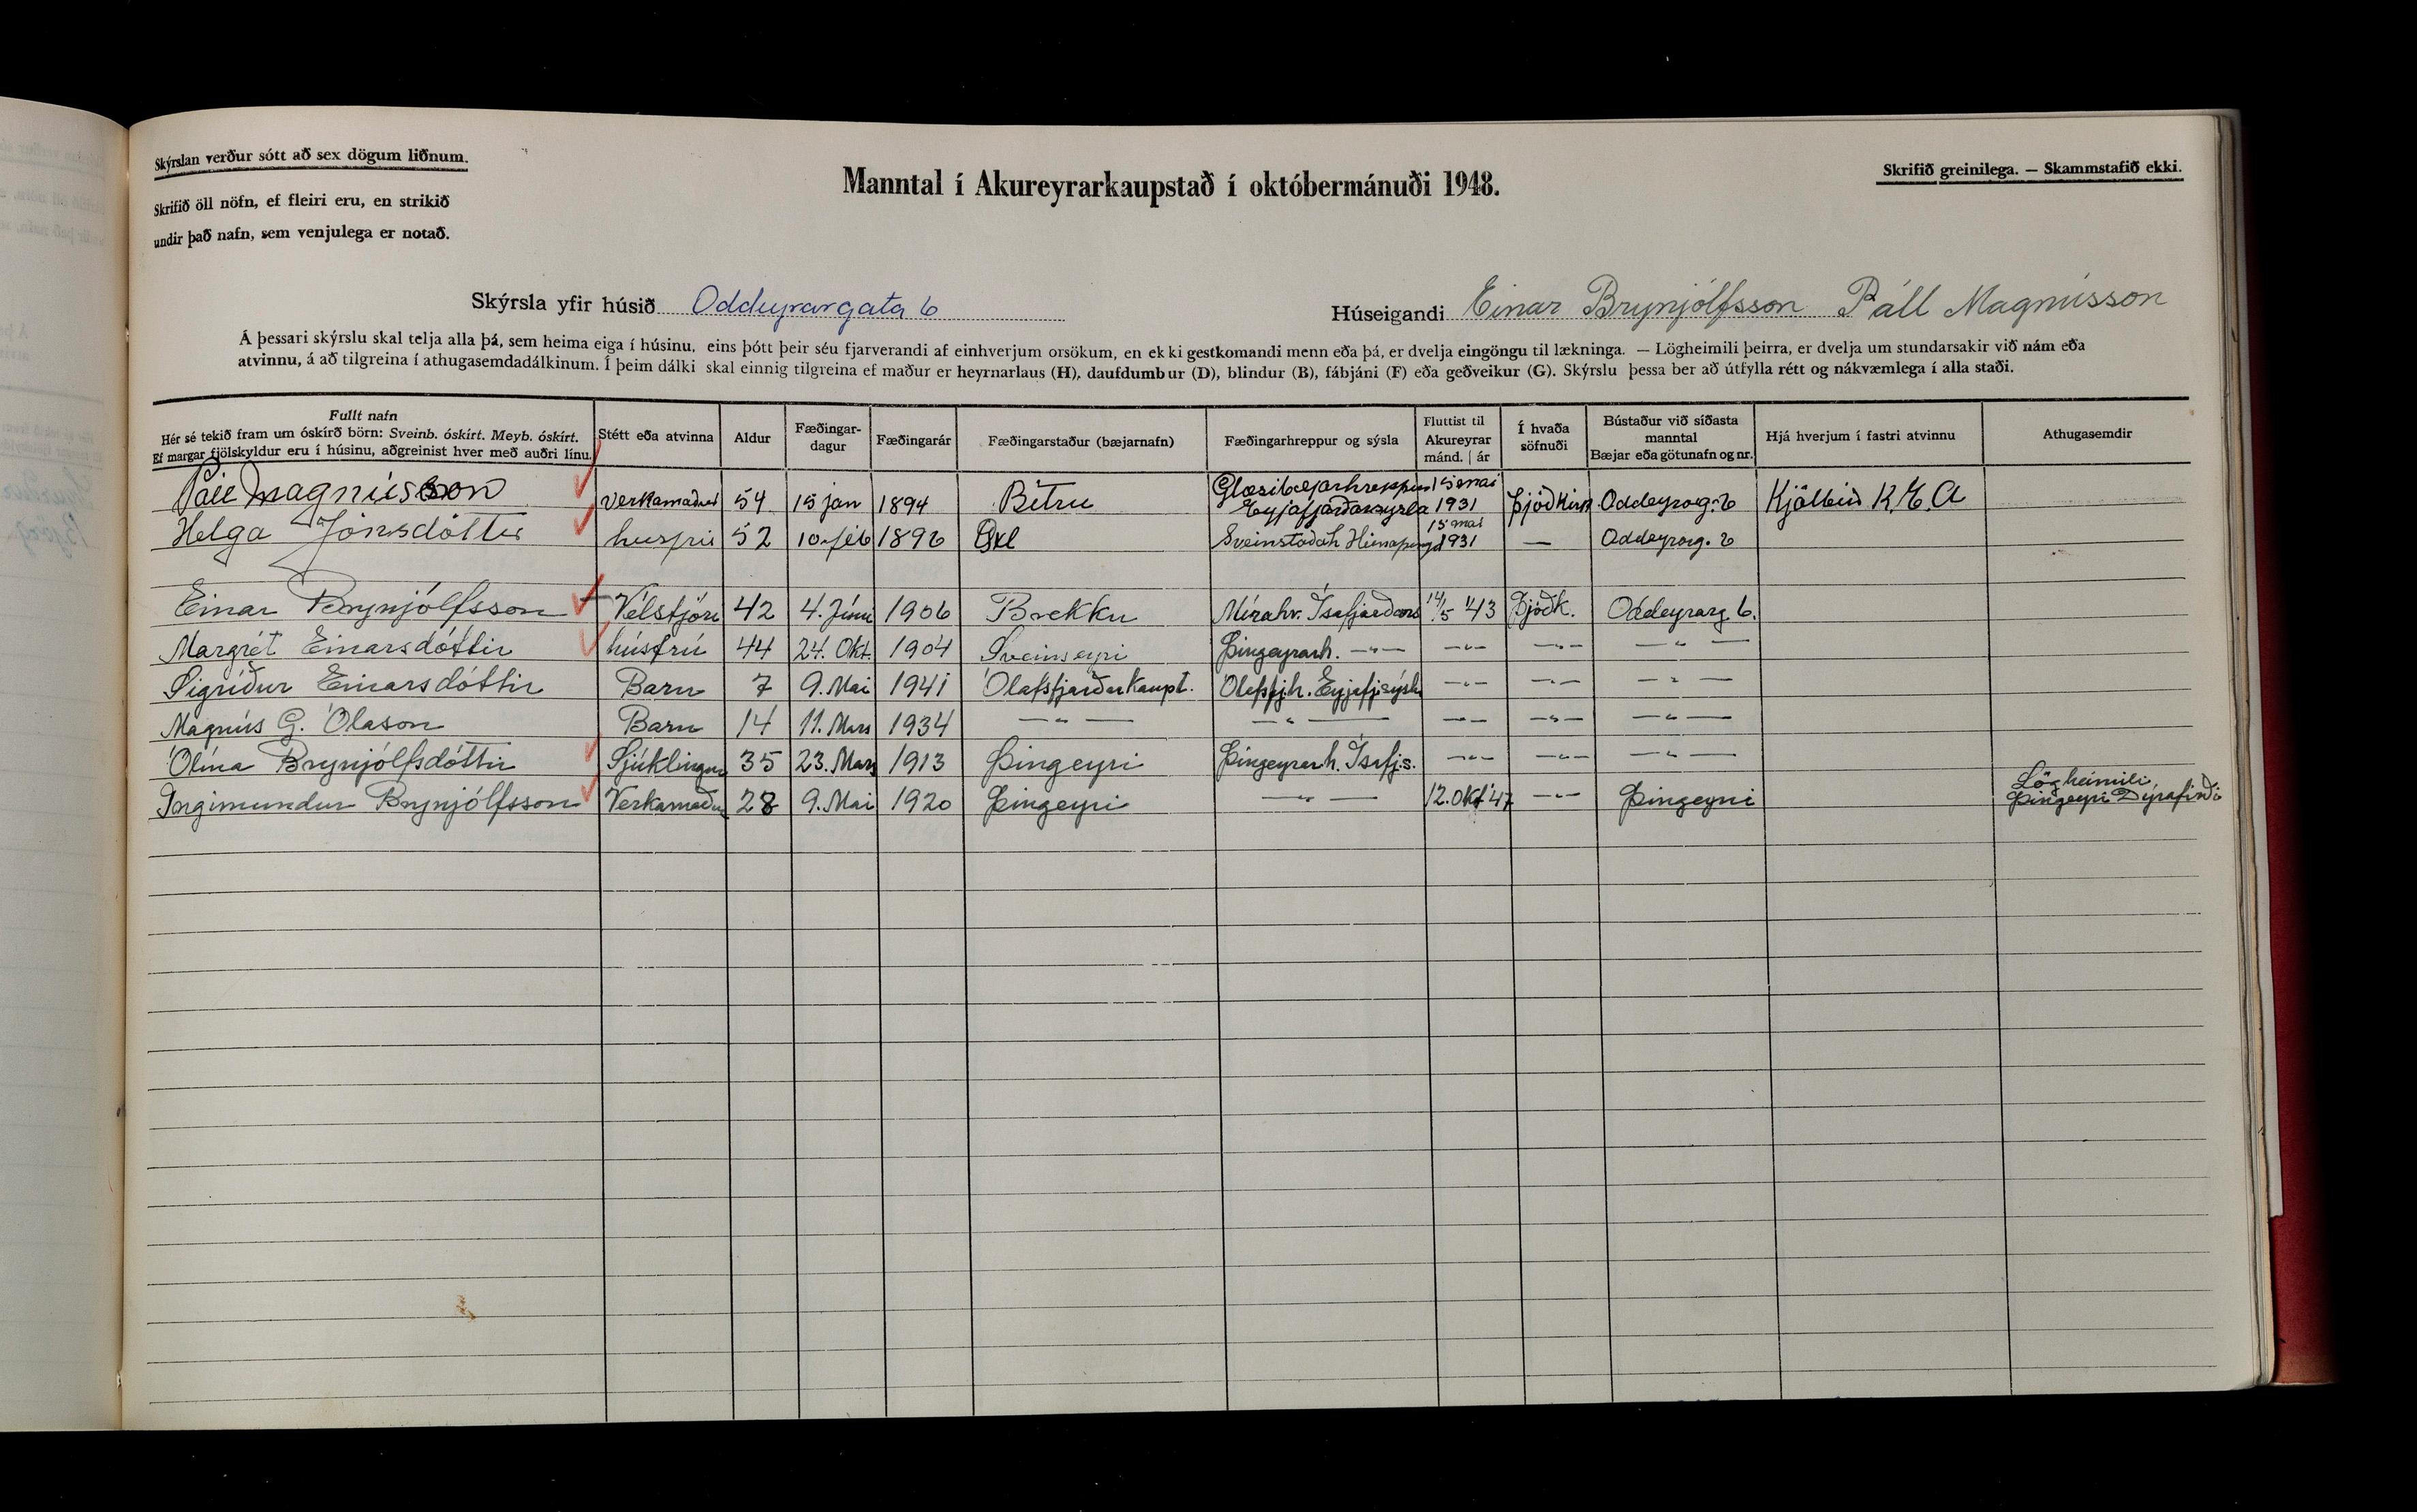 Skýrslan verður sótt að sex dögum liðnum.
Skrifið öll nöfn, ef fleiri eru, en strikið
undir það nafn, sem venjulega er notað.
Manntal í Akureyrarkaupstað í októbermánuði 1948.
Skrifið greinilega. — Skammstafið ekki.
Skýrsla yfir húsið Oddeyrargata 6
Húseigandi Einar Brynjólfsson Páll Magnússon
Á þessari skýrslu skal telja alla þá, sem heima eiga í húsinu, eins þótt þeir séu fjarverandi af einhverjum orsökum, en ekki gestkomandi menn eða þá, er dvelja eingöngu til lækninga. — Lögheimili þeirra, er dvelja um stundarsakir við nám eða
atvinnu, á að tilgreina í athugasemdadálkinum. Í þeim dálki skal einnig tilgreina ef maður er heyrnarlaus (H), daufdumbur (D), blindur (B), fábjáni (F) eða geðveikur (G). Skýrslu þessa ber að útfylla rétt og nákvæmlega í alla staði.
Fullt nafn
Hér sé tekið fram um óskírð börn: Sveinb. óskírt. Meyb. óskírt.
Ef margar fjölskyldur eru í húsinu, aðgreinist hver með auðri línu.
Stétt eða atvinna
Aldur
Fæðingar-
dagur
Fæðingarár
Fæðingarstaður (bæjarnafn)
Fæðingarhreppur og sýsla
Fluttist til
Akureyrar
mánd. | ár
Í hvaða
söfnuði
Bústaður við síðasta
manntal
Bæjar eða götunafn og nr.
Hjá hverjum í fastri atvinnu
Athugasemdir
Páll Magnússon verkamaður 54 15 jan 1894 Bitru Glæsibæjarhreppur Eyjafjarðarsýsla 15 mai 1931 Þjóðkirk. Oddeyrarg. 6 K E A
Helga Jónsdóttir husfrú 52 10 feb 1896 Sveinstaðah 15 mai 1931 — Oddeyrarg. 6
Einar Brynjólfsson Vélstjóri 42 4. Júní 1906 Brekku Mírahr. Ísafjarðars 14/5 '43 Þjóðk. Oddeyrarg. 6.
Margrét Einarsdóttir húsfrú 44 24. Okt. 1904 Sveinseyri Þingeyrarh. —"— —"— —"— —"—
Sigríður Einarsdóttir Barn 7 9. Mai 1941 Ólafsfjarðarkaupt. Ólafsfj.h. Eyjafj.sýsla —"— —"— —"—
Magnús G. Ólason Barn 14 11. Mars 1934 —"— —"— —"— —"— —"—
Ólína Brynjólfsdóttir Sjúklingur 35 23. Mars 1913 Þingeyri Þingeyrarh. Ísafj.s. —"— —"— —"—
Ingimundur Brynjólfsson Verkamaður 28 9. Mai 1920 Þingeyri —"— 12. okt '47 —"— Þingeyri Lögheimili Þingeyri Dýrafirði